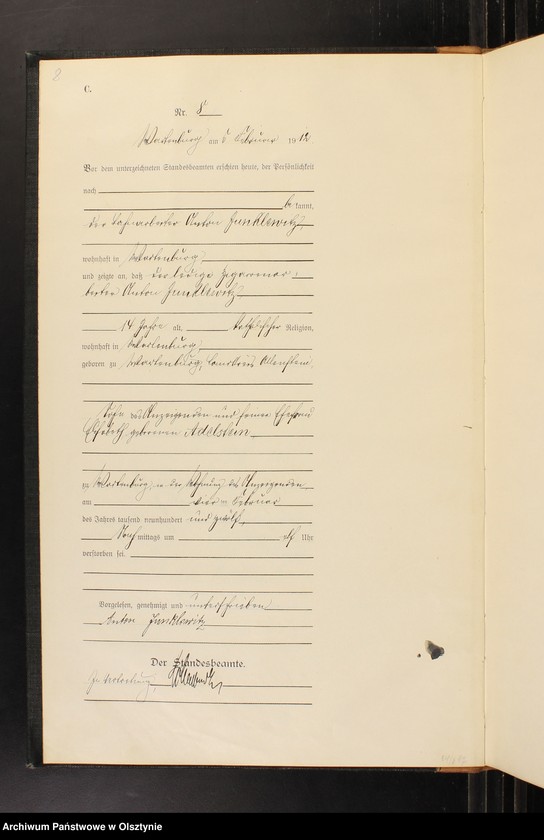 8
C.
Nr. 8
Wartenburg am 5 Februar 1912.
Vor dem unterzeichneten Standesbeamten erschien heute, der Persönlichkeit
nach
be kannt,
der Anton Junklewitz
wohnhaft in Wartenburg
und zeigte an, daß der ledige
Anton Junklewitz
14 Jahre alt, katholischer Religion,
wohnhaft in Wartenburg
geboren zu Wartenburg, Landkreis Allenstein,
Sohn des Anzeigenden und seiner Ehefrau
Elisabeth geborenen Adelstein
zu Wartenburg, in der Wohnung des Anzeigenden
am vier Februar
des Jahres tausend neunhundert und zwölf
Nach mittags um elf Uhr
verstorben sei.
Vorgelesen, genehmigt und unterschrieben
Anton Junklewitz
Der Standesbeamte.
In Vertretung,
Archiwum Państwowe w Olsztynie